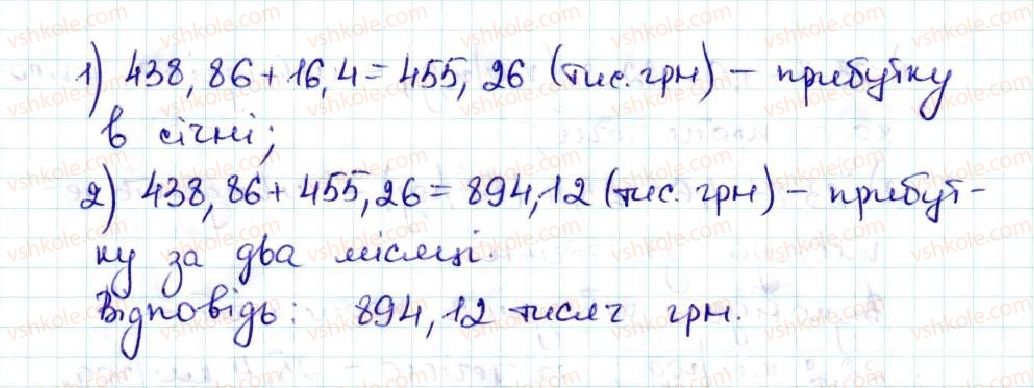 1) 438,86 + 16,4 = 455,26 (тис. грн) – прибутку
в січні;
2) 438,86 + 455,26 = 894,12 (тис. грн) – прибут-
ку за два місяці.
Відповідь: 894,12 тисяч грн.